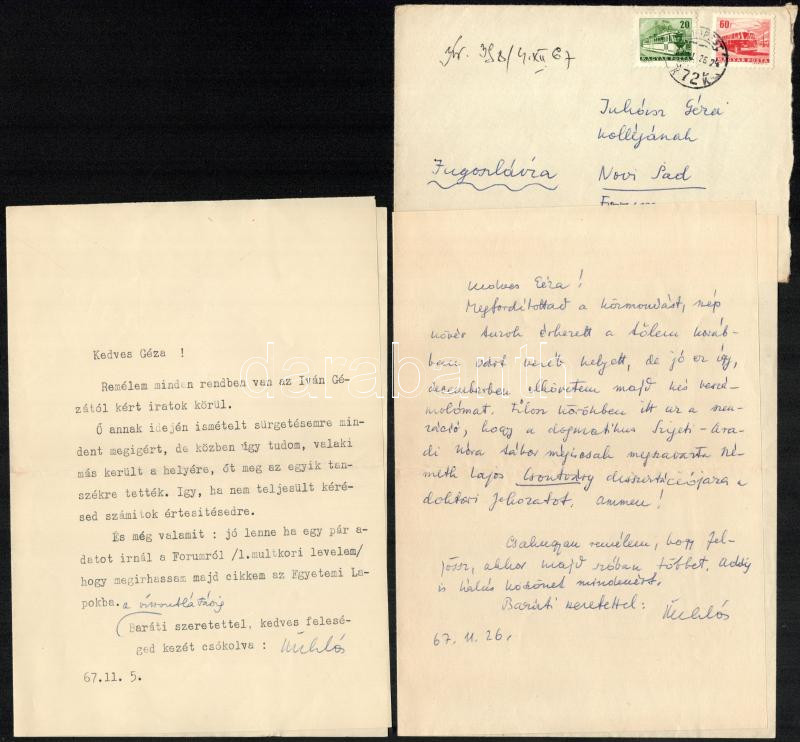 20
MAGYAR POSTA
60
MAGYAR POSTA
72
Juhász Géza
kollégának
Jugoslávia
Novi Sad
Forum
Kedves Géza !
Remélem minden rendben van az Iván Gé-
zától kért iratok körül.
Ő annak idején ismételt sürgetésemre min-
dent megigért, de közben úgy tudom, valaki
más került a helyére, őt meg az egyik tan-
székre tették. Igy, ha nem teljesült kéré-
sed számitok értesitésedre.
És még valamit : jó lenne ha egy pár a-
datot irnál a Forumról /l.multkori levelem/
hogy megirhassam majd cikkem az Egyetemi La-
pokba. a viszontlátásig
Baráti szeretettel, kedves felesé-
ged kezét csókolva : Miklós
67.11. 5.
Kedves Géza !
Megfordítottad a közmondást, szép
kövér túzok érkezett a tőlem koráb-
ban várt veréb helyett, de jó ez így,
decemberben elkövetem majd kis beszá-
molómat. Filosz körökben itt az a szen-
záció, hogy a dogmatikus Szigeti-Ara-
di Nóra tábor mégiscsak megszavazta Né-
meth Lajos Csontváry disszertációjára a
doktori fokozatot. Ammen !
Csakugyan remélem, hogy fel-
jössz, akkor majd szóban többet. Addig
is hálás köszönet mindenért.
Baráti szeretettel:
Miklós
67. 11. 26.
darabanth